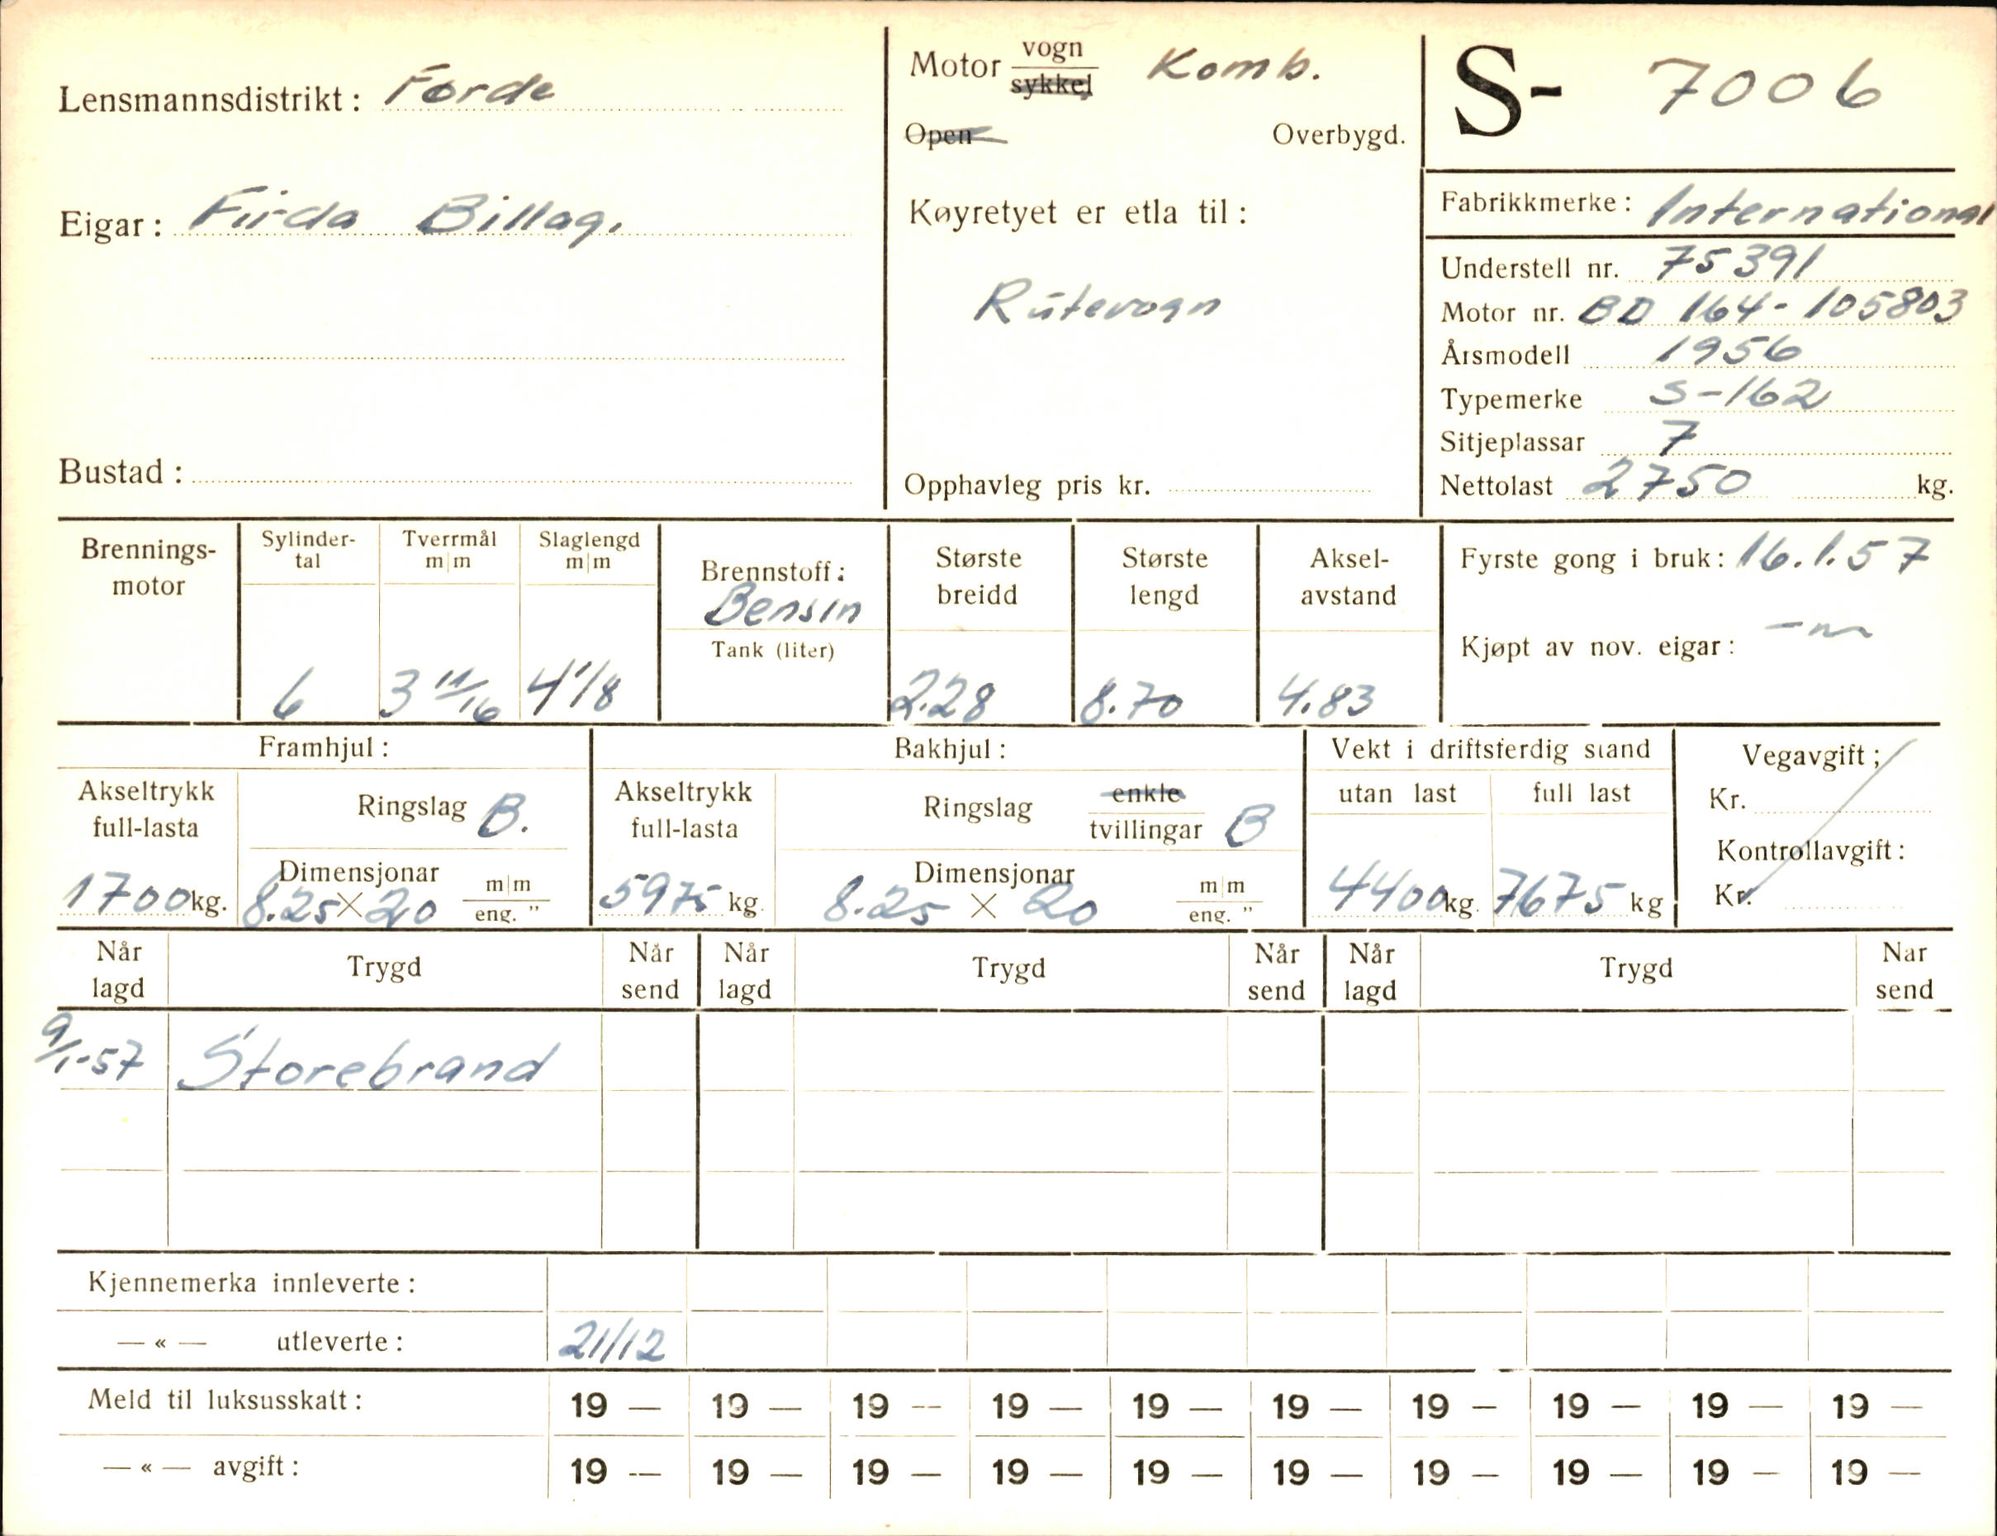 Lensmannsdistrikt: Førde
Eigar: Firda Billag.
Bustad:
Motor vogn
sykkel Komb.
Open Overbygd.
Køyretyet er etla til:
Rutevogn
Opphavleg pris kr.
S- 7006
Fabrikkmerke: International
Understell nr. 75391
Motor nr. BD 164-105803
Årsmodell 1956
Typemerke S-162
Sitjeplassar 7
Nettolast 2750 kg.
Brennings-
motor
Sylinder-
tal
6
Tverrmål
m|m
3 11/16
Slaglengd
m|m
4 1/8
Brennstoff:
Bensin
Tank (liter)
Største
breidd
2.28
Største
lengd
8.70
Aksel-
avstand
4.83
Fyrste gong i bruk: 16.1.57
Kjøpt av nov. eigar: —"—
Framhjul:
Akseltrykk
full-lasta
1700 kg.
Ringslag B.
Dimensjonar
8.25 × 20 m|m
eng. "
Bakhjul:
Akseltrykk
full-lasta
5975 kg.
Ringslag enkle
tvillingar B
Dimensjonar
8.25 × 20 m|m
eng. "
Vekt i driftsferdig stand
utan last full last
4400 kg. 7675 kg
Vegavgift;
Kr.
Kontrollavgift:
Kr.
Når
lagd Trygd Når
send Når
lagd Trygd Når
send Når
lagd Trygd Nar
send
9/1-57 Storebrand
Kjennemerka innleverte:
— « — utleverte: 21/12
Meld til luksusskatt: 19 — 19 — 19 — 19 — 19 — 19 — 19 — 19 — 19 — 19 —
— « — avgift: 19 — 19 — 19 — 19 — 19 — 19 — 19 — 19 — 19 — 19 —